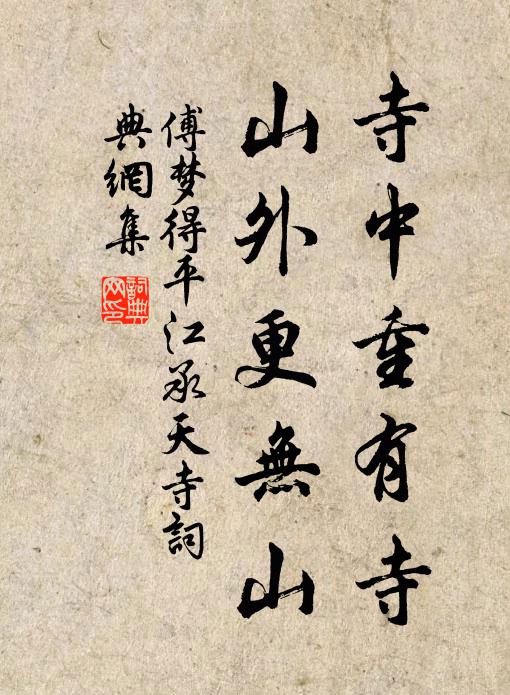 寺中重有寺
山外更無山
傅梦得平江承天寺詞
典網集
詞典网印